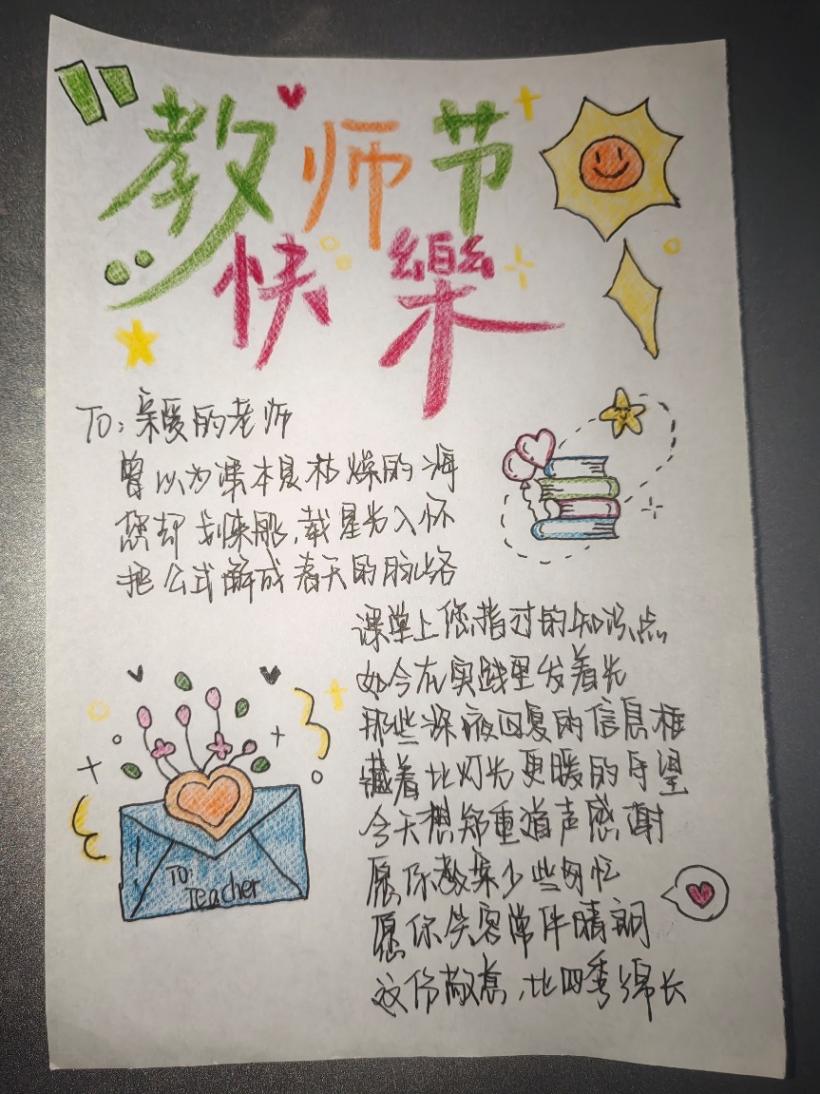 教师节
快樂
To：亲爱的老师
曾以为课本是枯燥的海
您却划来船，载星光入怀
把公式解成春天的脉络
课堂上您指过的知识点
如今在实践里发着光
那些深夜回复的信息框
藏着比灯光更暖的守望
今天想郑重道声感谢
愿你教案少些匆忙
愿你笑容常伴晴朗
这份敬意，比四季绵长
To:
Teacher